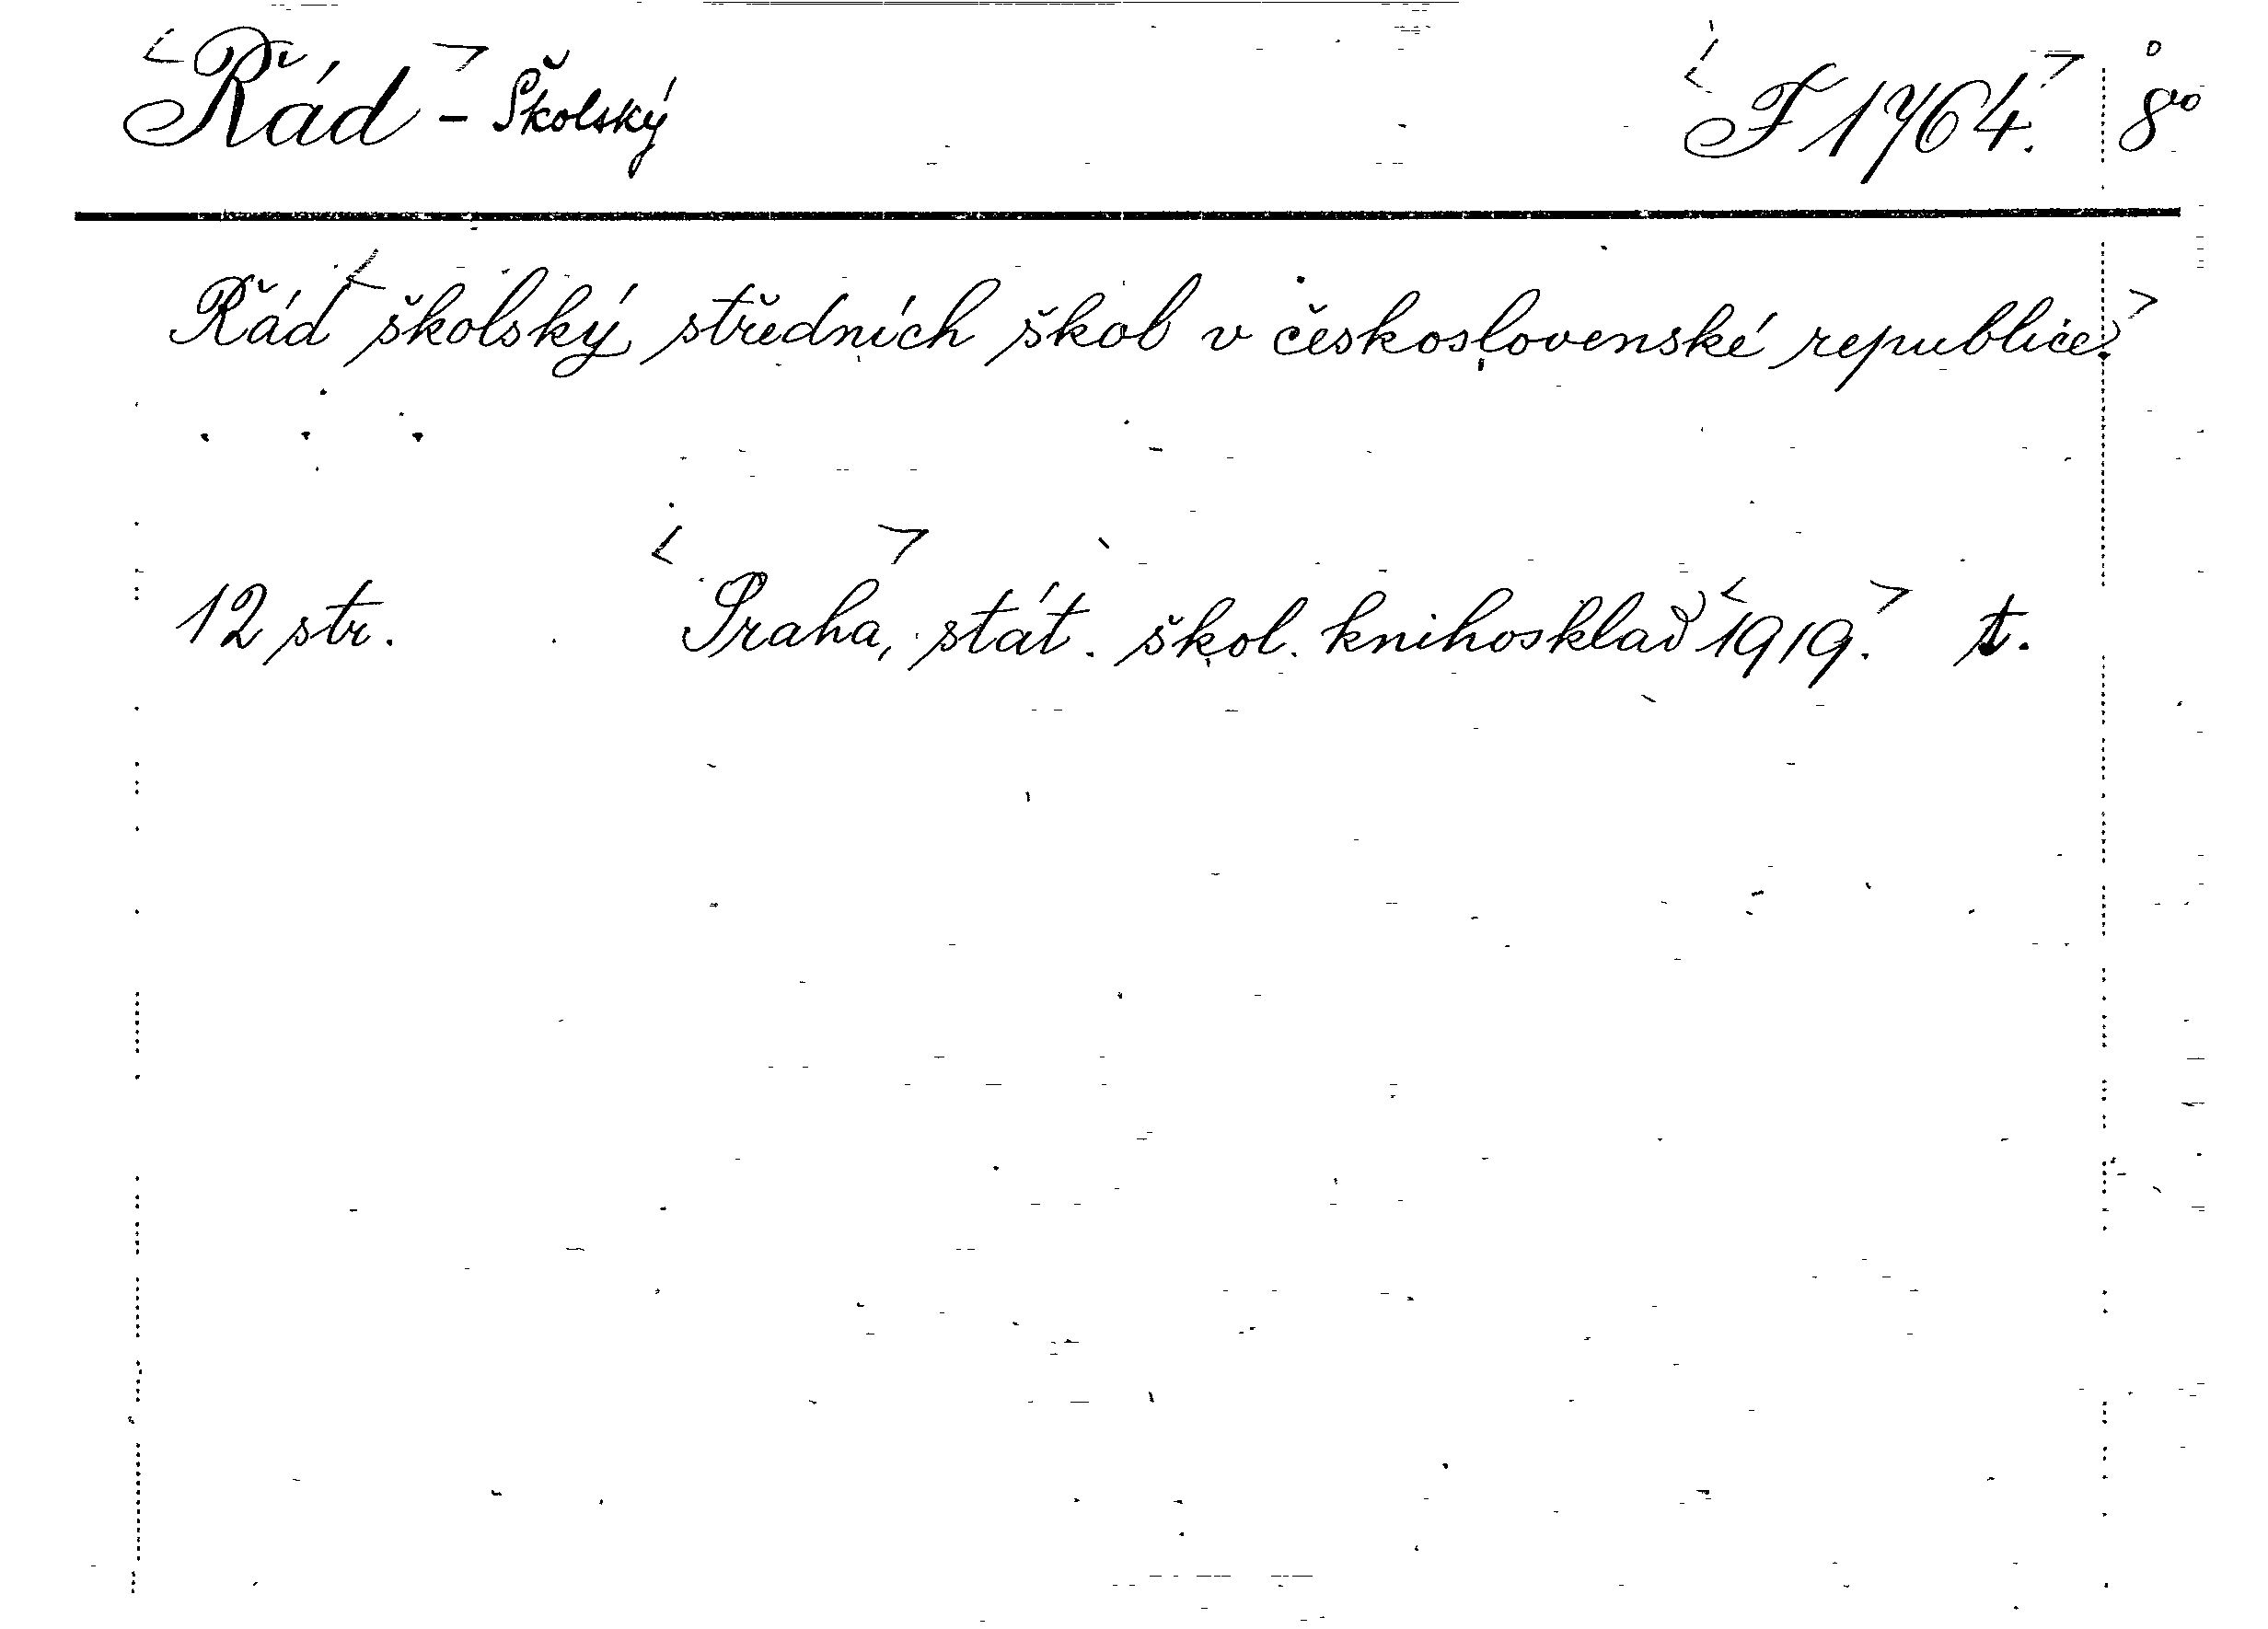 Řád - Školský F 1764. 8vo
Řád školský středních škol v československé republice.
. . .
12 str. Praha, stát. škol. knihosklad 1919. t.